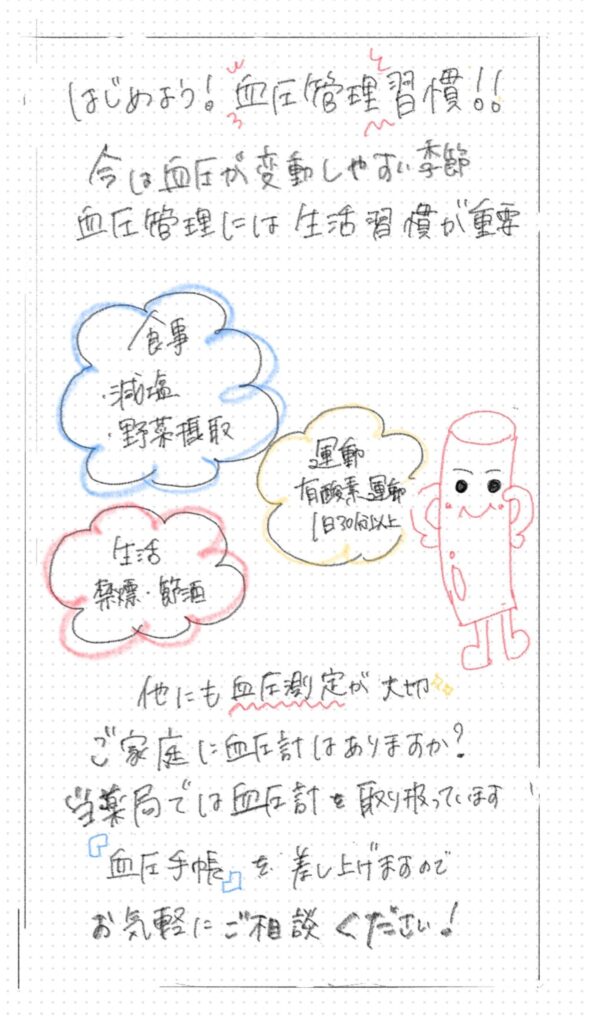 はじめよう！血圧管理習慣!!
今は血圧が変動しやすい季節
血圧管理には生活習慣が重要
食事
・減塩
・野菜摂取
運動
有酸素運動
1日30分以上
生活
禁煙・節酒
他にも血圧測定が大切
ご家庭に血圧計はありますか？
当薬局では血圧計を取り扱っています
『血圧手帳』を差し上げますので
お気軽にご相談ください！